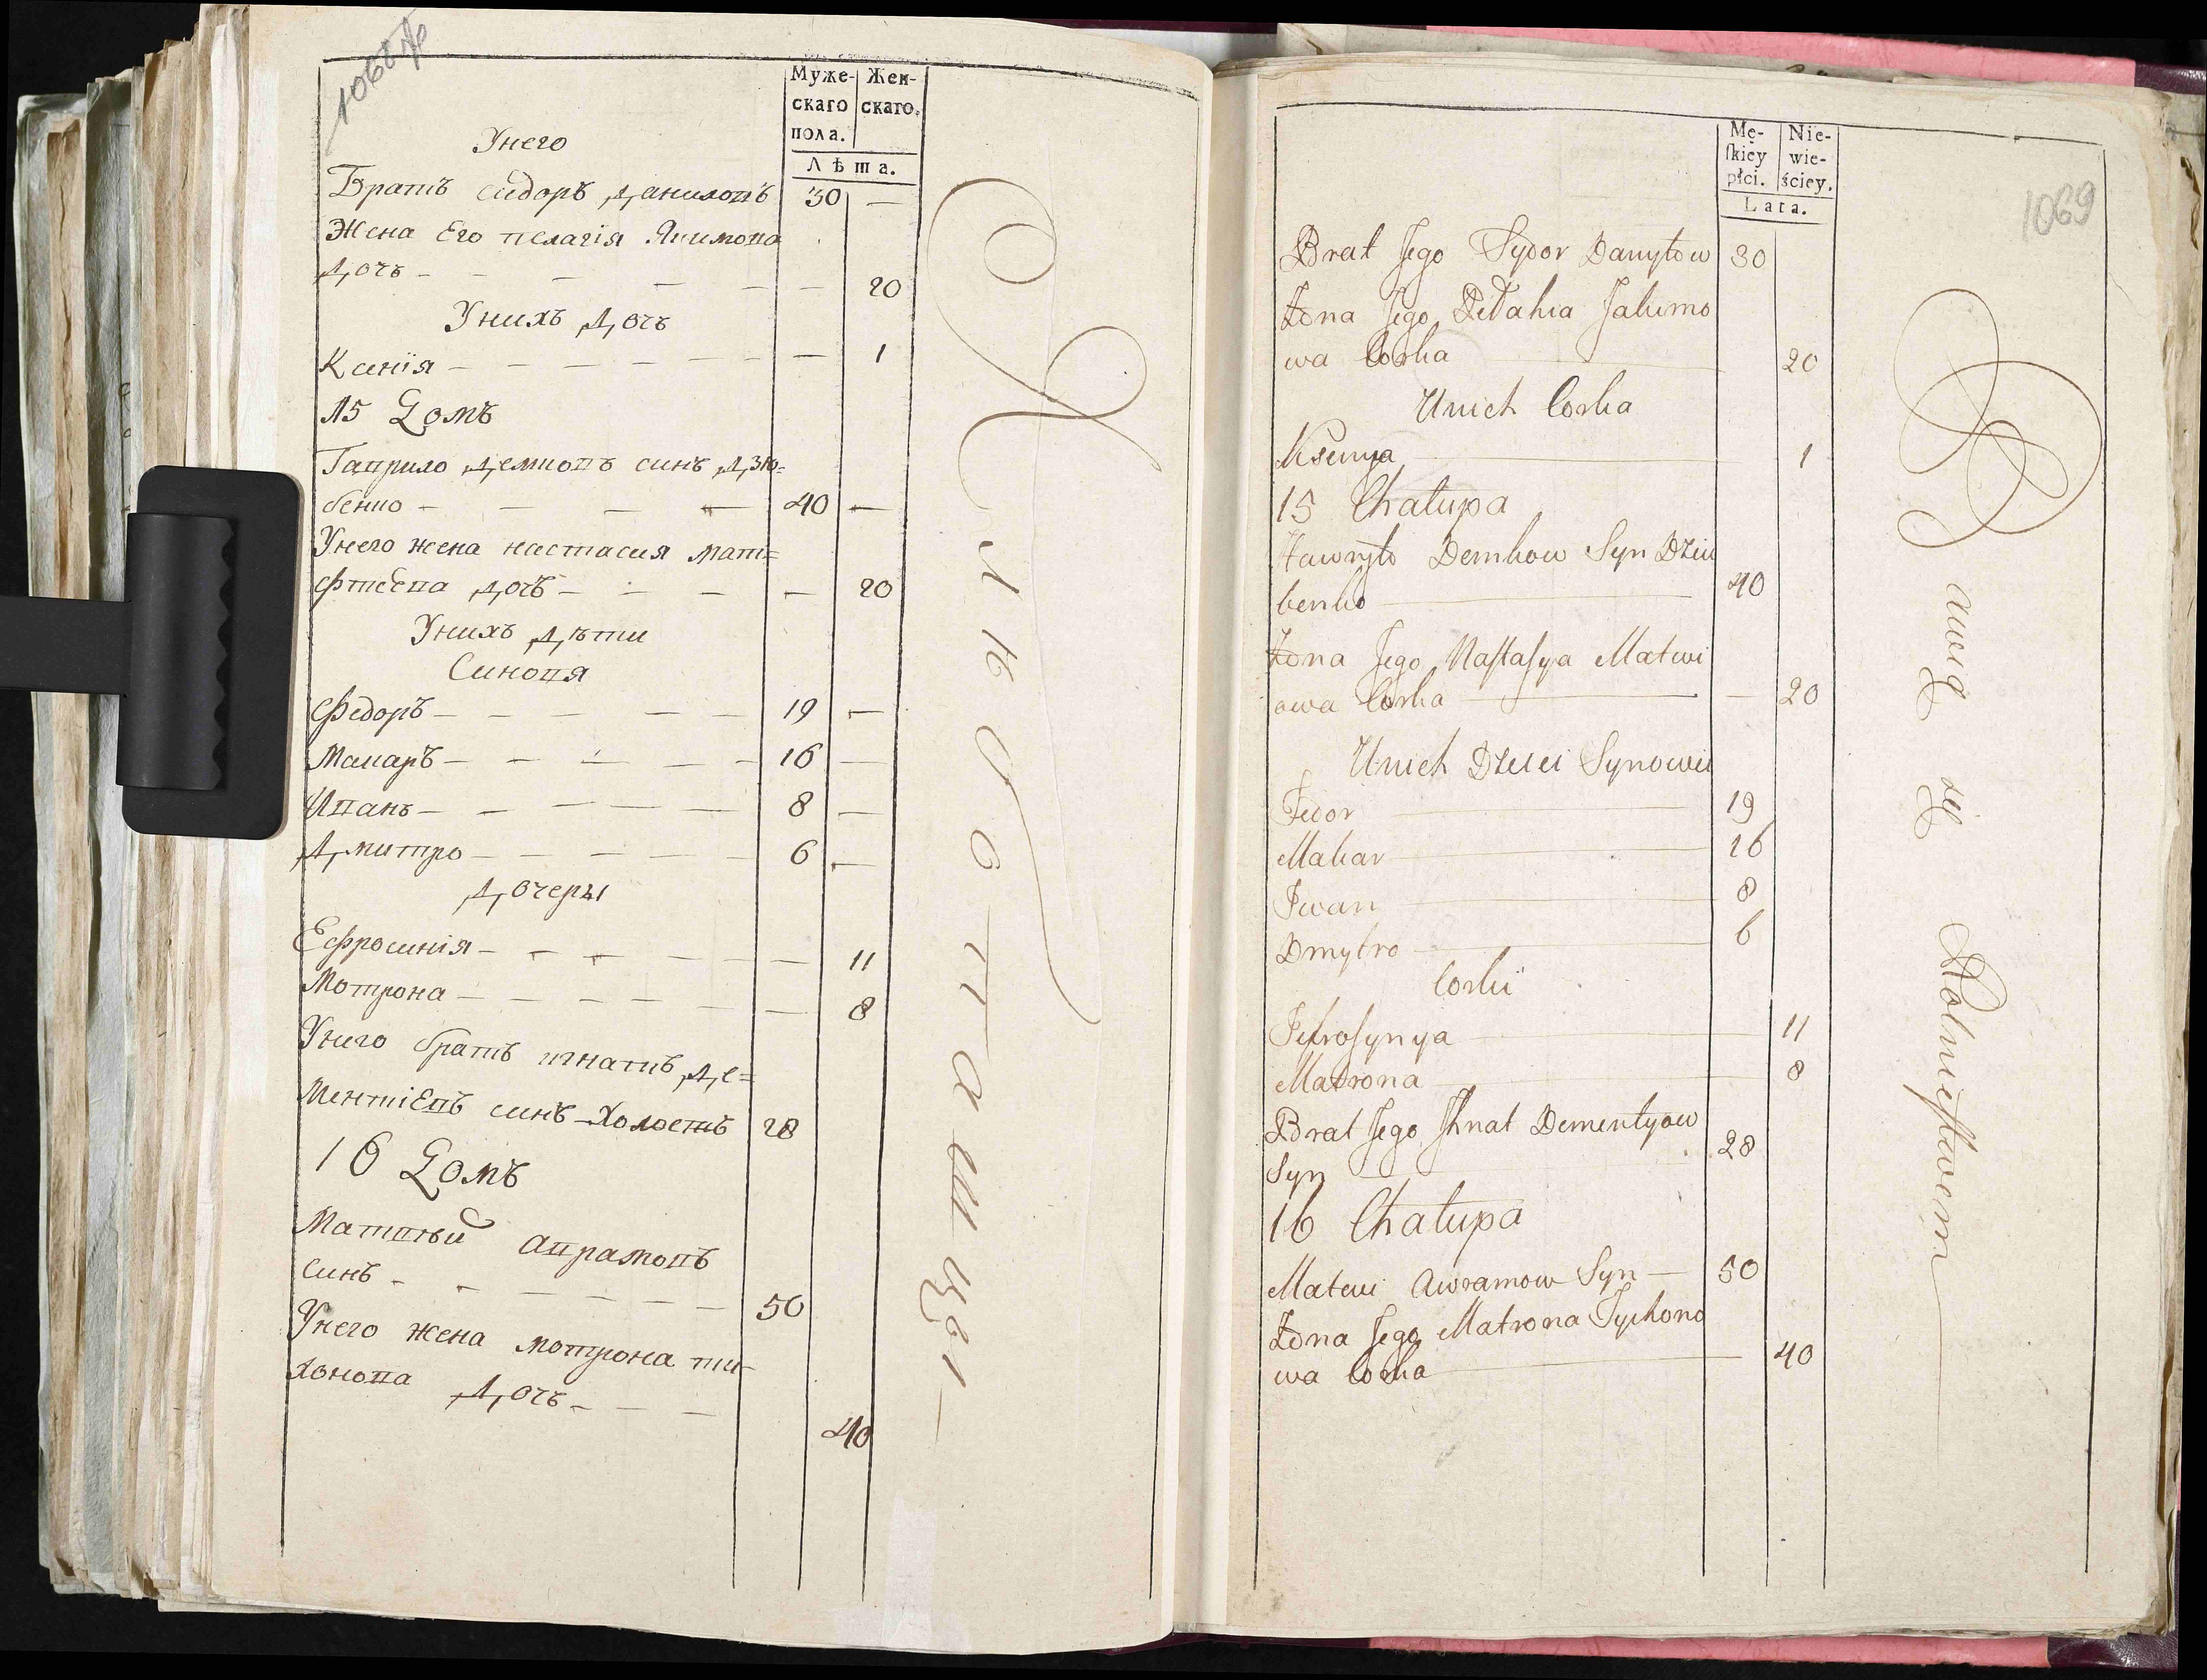 1068 об
Муже- Жен-
скаго скаго.
пола.
Лѣта.
Унего
Братъ сидоръ Даниловъ 30 —
Жена Его пелагія Якимова
Дочъ — 20
Унихъ Дочъ
Ксенїя — 1
15 Домъ
Гаврило Демковъ синъ Дзю=
бенко — 40 —
Унего жена настасия мат=
фтеева Дочъ — 20
Унихъ Дѣти
Синовя
Федоръ — 19 —
Макаръ — 16 —
Иванъ — 8 —
Дмитро — 6 —
Дочеры
Ефросинія — 11
Мотрона — 8
Унего братъ игнатъ Де=
ментіЕвъ синъ Холостъ 28
16 Домъ
Матвѣй аврамовъ
синъ — 50
Унего жена мотрона ти-
хонова Дочъ — 40
Mę- Nie-
ſkiey wie-
płci. ściey.
Lata.
1069
Brat Jego Sydor Danyłow 30
Żona Jego Pełahia Jakimo
wa Corka 20
Unich Corka
Ksenya 1
15 Chałupa
Hawryło Demkow Syn Dziu
benko 40
Żona Jego Naſtaſya Matwi
owa Corka — 20
Unich Dzieci Synowie
Fedor 19
Makar 16
Iwan 8
Dmytro 6
Corki
Jefroſynya 11
Matrona 8
Brat Jego Ihnat Dementyow
Syn 28
16 Chałupa
Matwi Awramow Syn — 50
Żona Jego Matrona Tychono
wa Corka 40